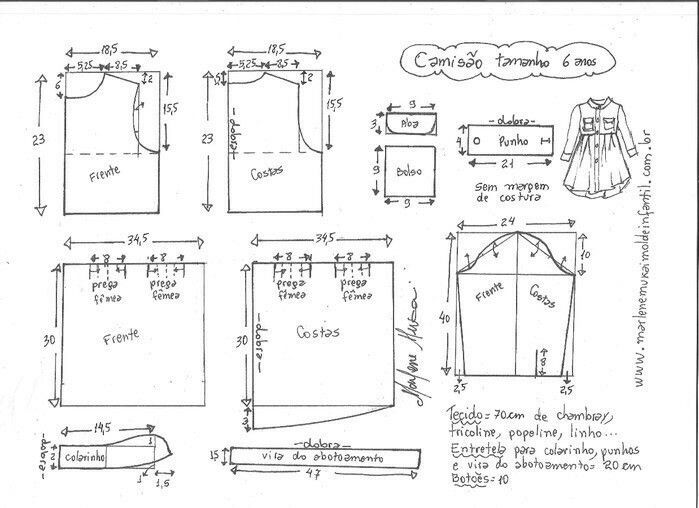 Camisão tamanho 6 anos
18,5
5,25
8,5
6
2
15,5
23
Frente
18,5
5,25
8,5
2
15,5
23
-dobra-
Costas
9
3
Aba
9
Bolso
9
-dobra-
4
Punho
21
sem margem
de costura
www.marlenemukaimoldeinfantil.com.br
34,5
8
8
prega
fêmea
prega
fêmea
30
Frente
34,5
8
8
prega
fêmea
prega
fêmea
30
-dobra-
Costas
3
Marlene Mukai
24
10
40
Frente
Costas
8
2,5
2,5
14,5
-dobra-
2
colarinho
1
1
1,5
-dobra-
15
vira do abotoamento
47
Tecido = 70cm de chambray,
tricoline, popeline, linho...
Entretela para colarinho, punhos
e vira do abotoamento = 20 cm
Botões = 10